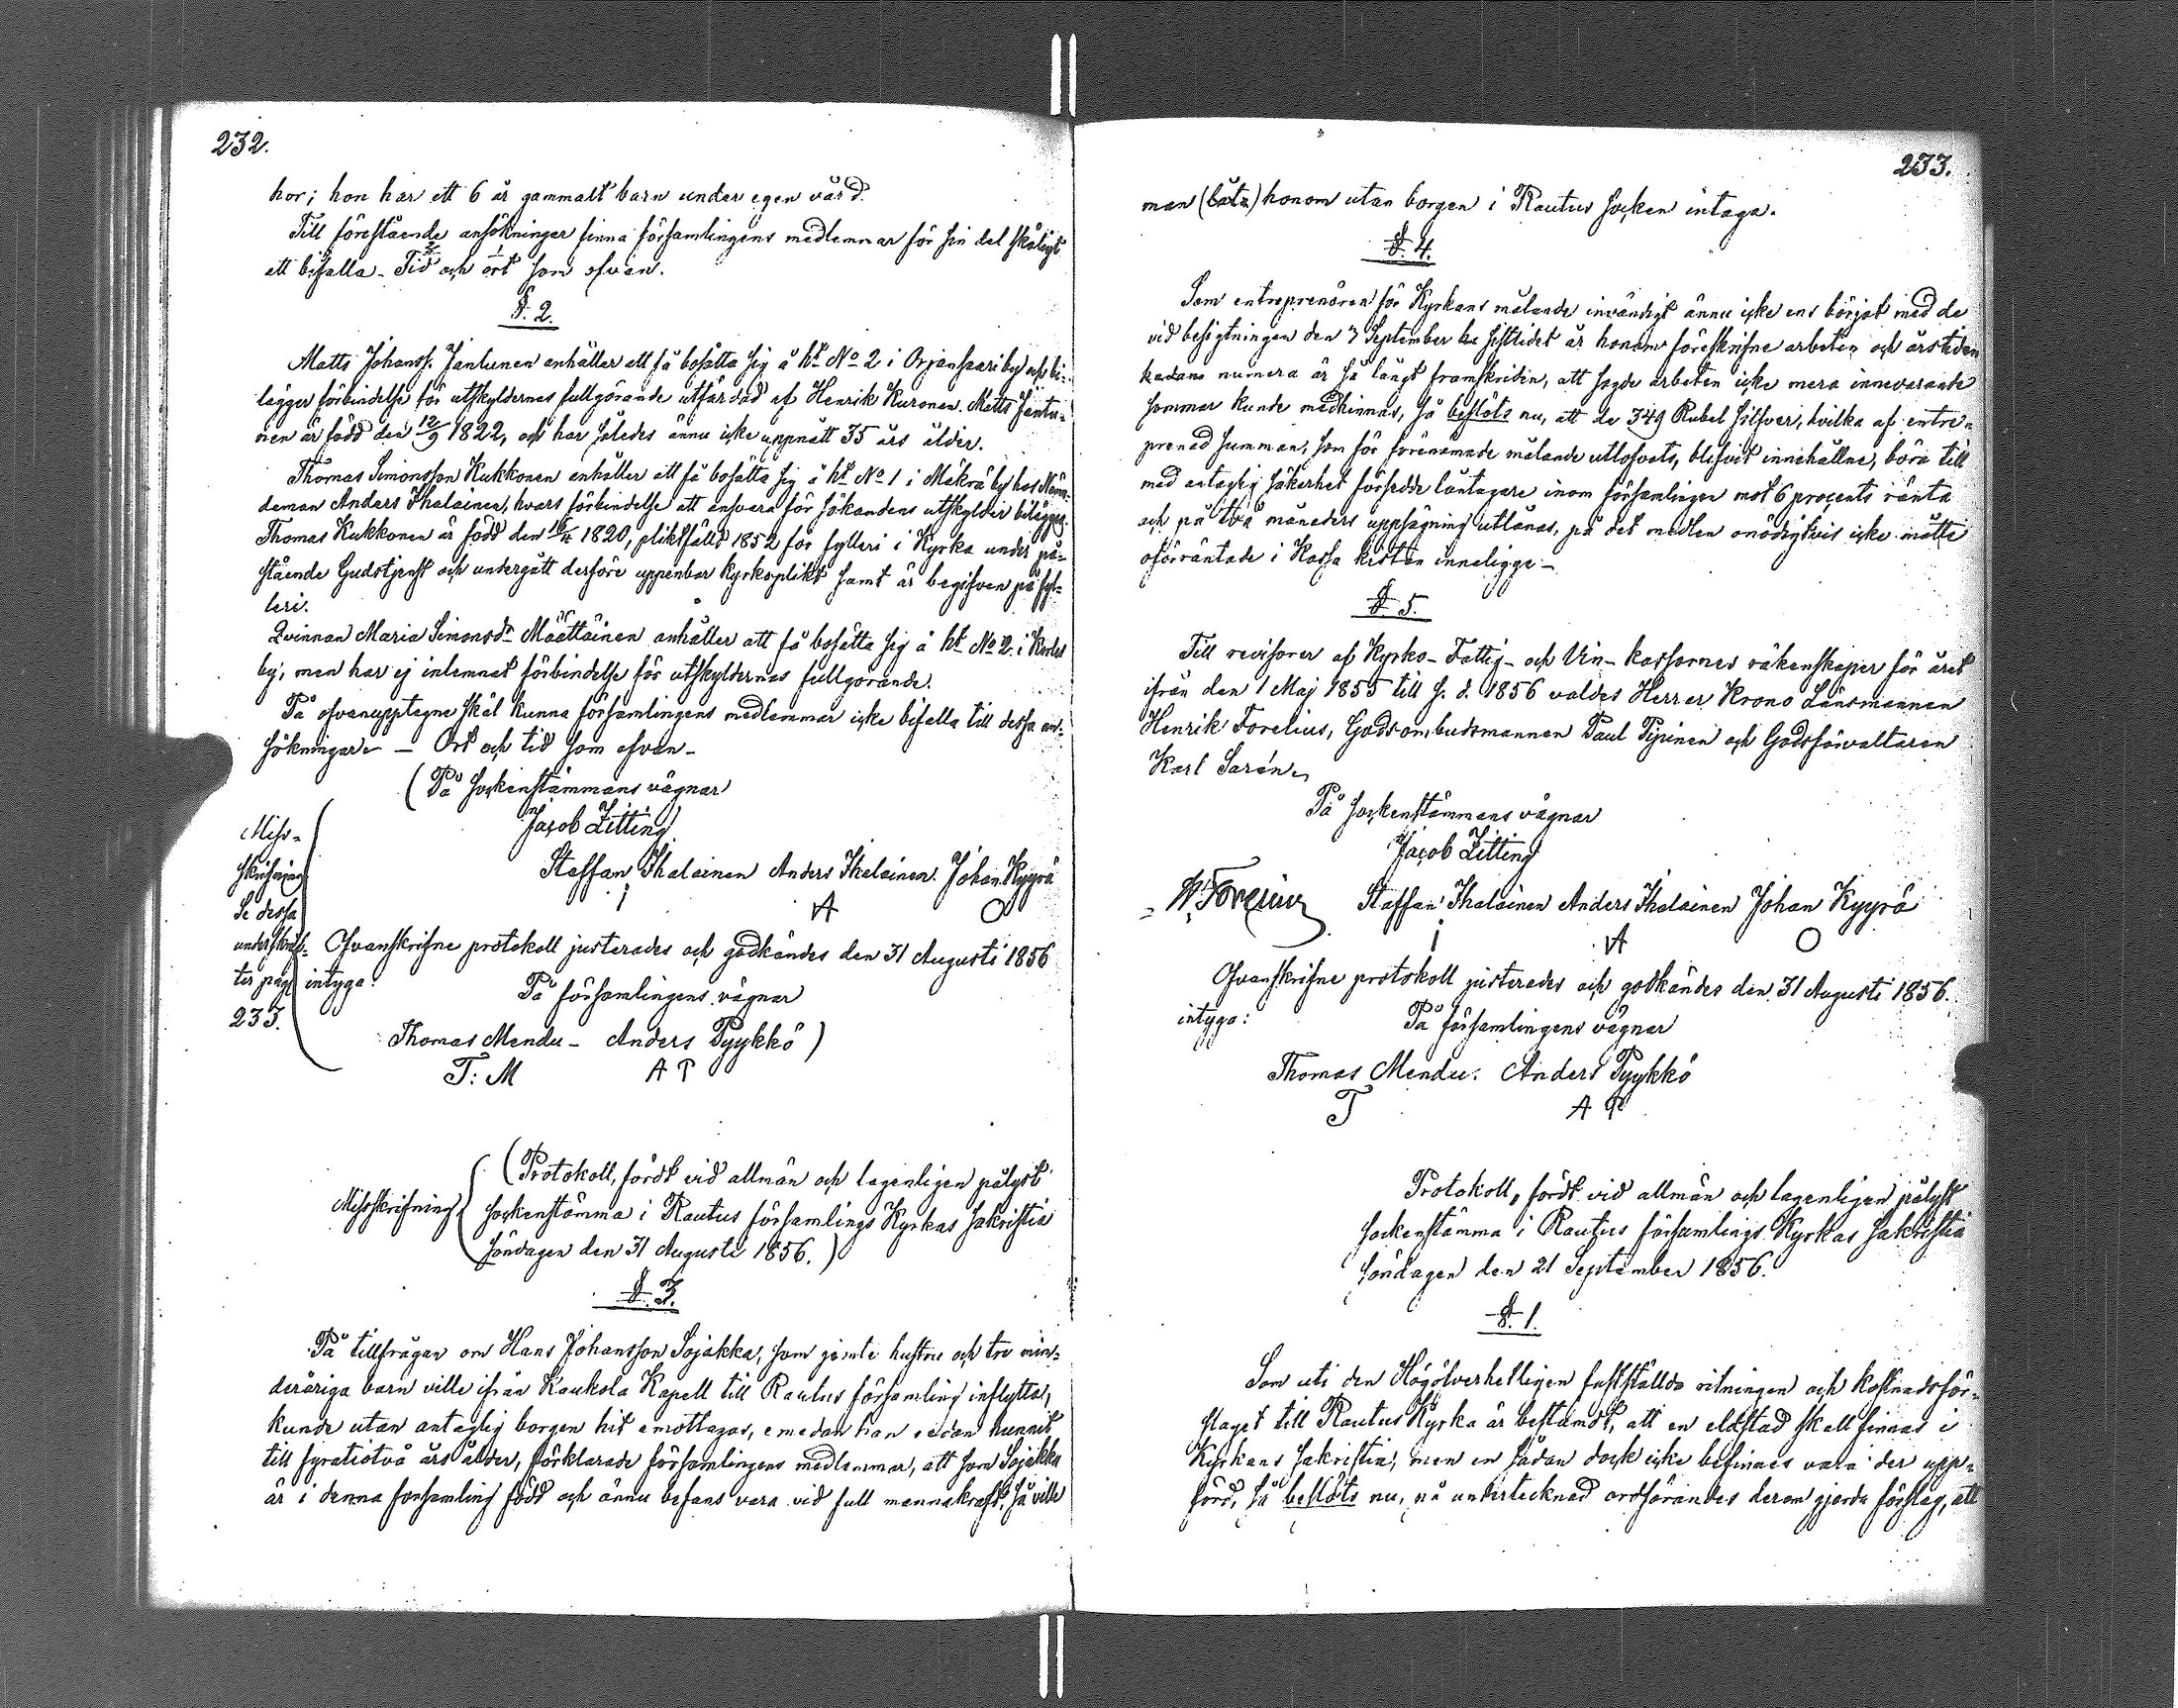 232.
hor; hon har ett 6 år gammalt barn under egen vård.
Till förestående ansökningar finna församlingens medlemmar för sin del skäligt
att bifalla. Tid och ort som ofvan.
§. 2.
Matts Johanss. Jantunen anhåller att få bosätta sig å ht No 2 i Orjansaari by och bi-
lägger förbindelse för utskyldernas fullgörande utfärdad af Henrik Kuronen. Matts Jantu-
nen är född den 12/9 1822, och har således ännu icke uppnått 35 års ålder.
Thomas Simonsson Kukkonen anhåller att få bosätta sig å ht No 1 i Mäkrä by hos Näm-
deman Anders Ihalainen, hvars förbindelse att ansvara för sökandens utskylder bilägges.
Thomas Kukkonen är född den 1820, pliktfälld 1852 för fylleri i Kyrka under på-
stående Gudstjenst och undergått derföre uppenbar Kyrkoplikt samt är begifven på fyl-
leri.
Qvinnan Maria Simonsdr Määttäinen anhåller att få bosätta sig å ht No 2. i
by, men har ej inlemnat förbindelse för utskyldernas fullgörande.
På ofvanupptagne skäl kunna församlingens medlemmar icke bifalla till dessa an-
sökningar. — Ort och tid som ofvan.
(På sockenstämmans vägnar
Jacob Zitting
Staffan Ihalainen Anders Ihalainen. Johan Kyyrä
I A O
Miss-
skrifning
Se dessa
underskrif-
ter pag.
233.
Ofvanskrifne protokoll justerades och godkändes den 31 Augusti 1856
intyga:
På församlingens vägnar
Thomas Mendu - Anders Pyykkö)
T: M A P
Missskrifning
(Protokoll, fördt vid allmän och lagenligen pålyst
sockenstämma i Rautus församlings Kyrkas sakristia
söndagen den 31 Augusti 1856.)
§. 3.
På tillfrågan om Hans Johansson Sojakka, som jemte hustru och tre min-
deråriga barn ville ifrån Kaukola Kapell till Rautus församling inflytta,
kunde utan antaglig borgen hit emottagas, emedan han redan hunnit
till fyratiotvå års ålder, förklarade församlingens medlemmar, att som Sojakka
är i denna församling född och ännu befans vara vid full mannakraft, så ville
233.
man (låta) honom utan borgen i Rautus socken intaga.
§. 4.
Som entreprenören för Kyrkans målande invändigt ännu icke ens börjat med de
vid besigtningen den 7 September sistlidet år honom föreskrifne arbeten och årstiden
redan numera är så långt framskriden, att sagde arbeten icke mera innevarande
sommar kunde medhinnas, så beslöts nu, att de 349 Rubel silfver, hvilka af entre-
prenad summan, som för förenämnde målande utlofvats, blifvit innehållne, böra till
med antaglig säkerhet försedde låntagare inom församlingen mot 6 procents ränta
och på två månaders uppsägning utlånas, på det medlen onödigtvis icke måtte
oförräntade i Kassa kistan inneligga.—
§ 5.
Till revisorer af Kyrko- Fattig- och Vin- kassornes räkenskaper för året
ifrån den 1 Maj 1855 till s. d. 1856 valdes Herrar Krono Länsmannen
Henrik Forelius, Godsombudsmannen Paul Pipinen och Godsförvaltaren
Karl Sarén.
På sockenstämmans vägnar
Jacob Zitting
H. Forelius Staffan Ihalainen Anders Ihalainen Johan Kyyrä
I A O
Ofvanskrifne protokoll justerades och godkändes den 31 Augusti 1856.
intyga:
På församlingens vägnar
Thomas Mendu. Anders Pyykkö
T A P
Protokoll, fördt vid allmän och lagenligen pålyst
sockenstämma i Rautus församlings Kyrkas sakristia
söndagen den 21 September 1856.
§. 1.
Som uti den Högölverhetligen fastställda ritningen och kostnadsför-
slaget till Rautus Kyrka är bestämdt, att en eldstad skall finnas i
Kyrkans sakristia, men en sådan dock icke befinnes vara der upp-
förd, så beslöts nu, på undertecknad ordförandes derom gjorda förslag, att